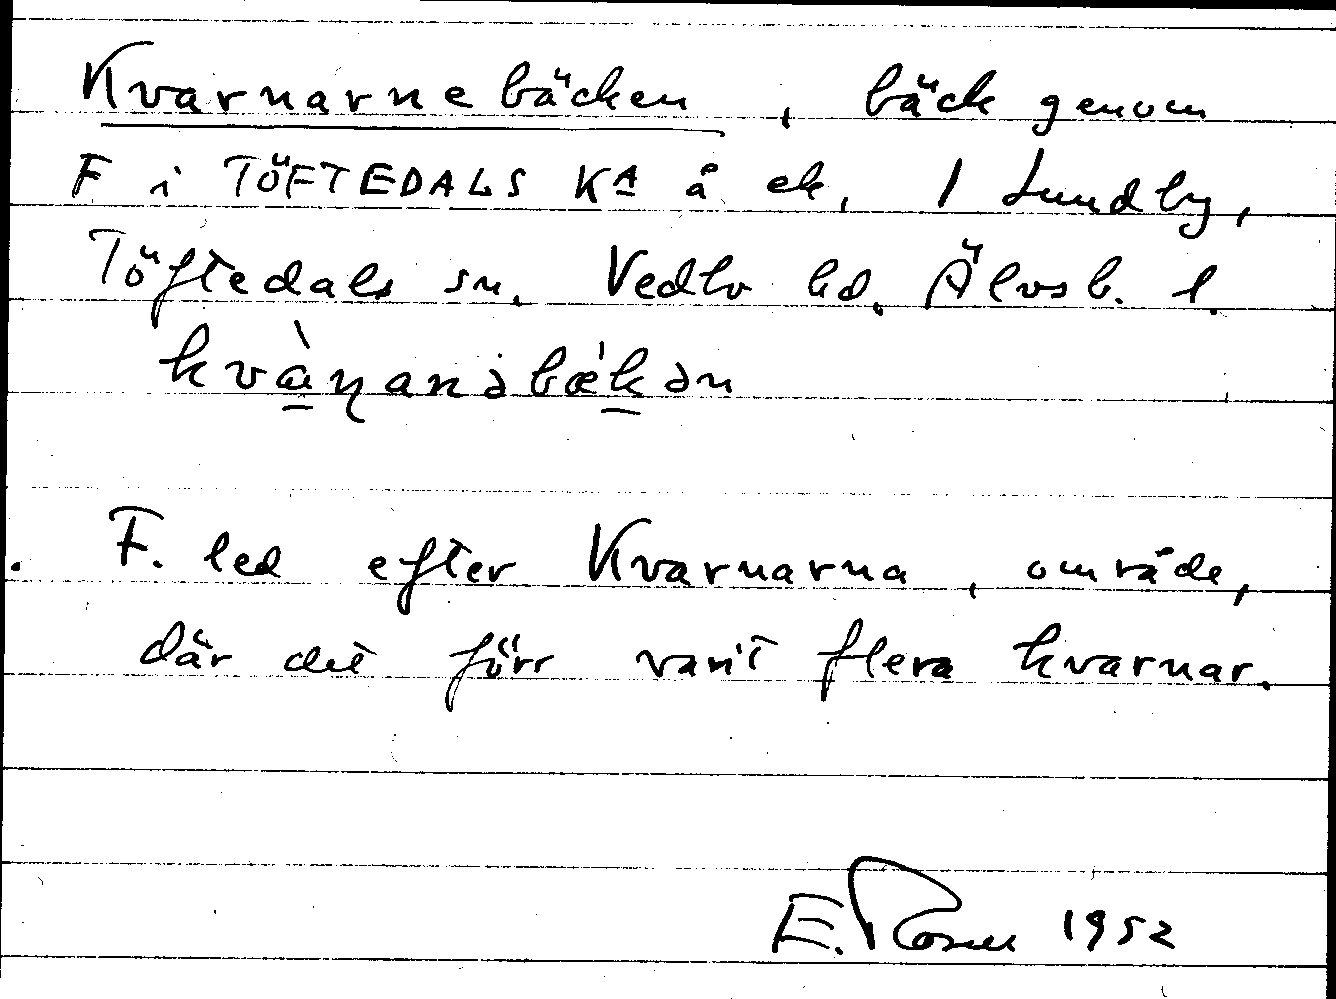 Kvarnarnebäcken, bäck genom
F i TÖFTEDALS KA å ek. 1 Lundby,
Töftedals sn. Vedbo hd. Älvsb. l.
kvàɳanəbæ̀kən
F. led efter Kvarnarna, område,
där det förr varit flera kvarnar.
E. Rosell 1952